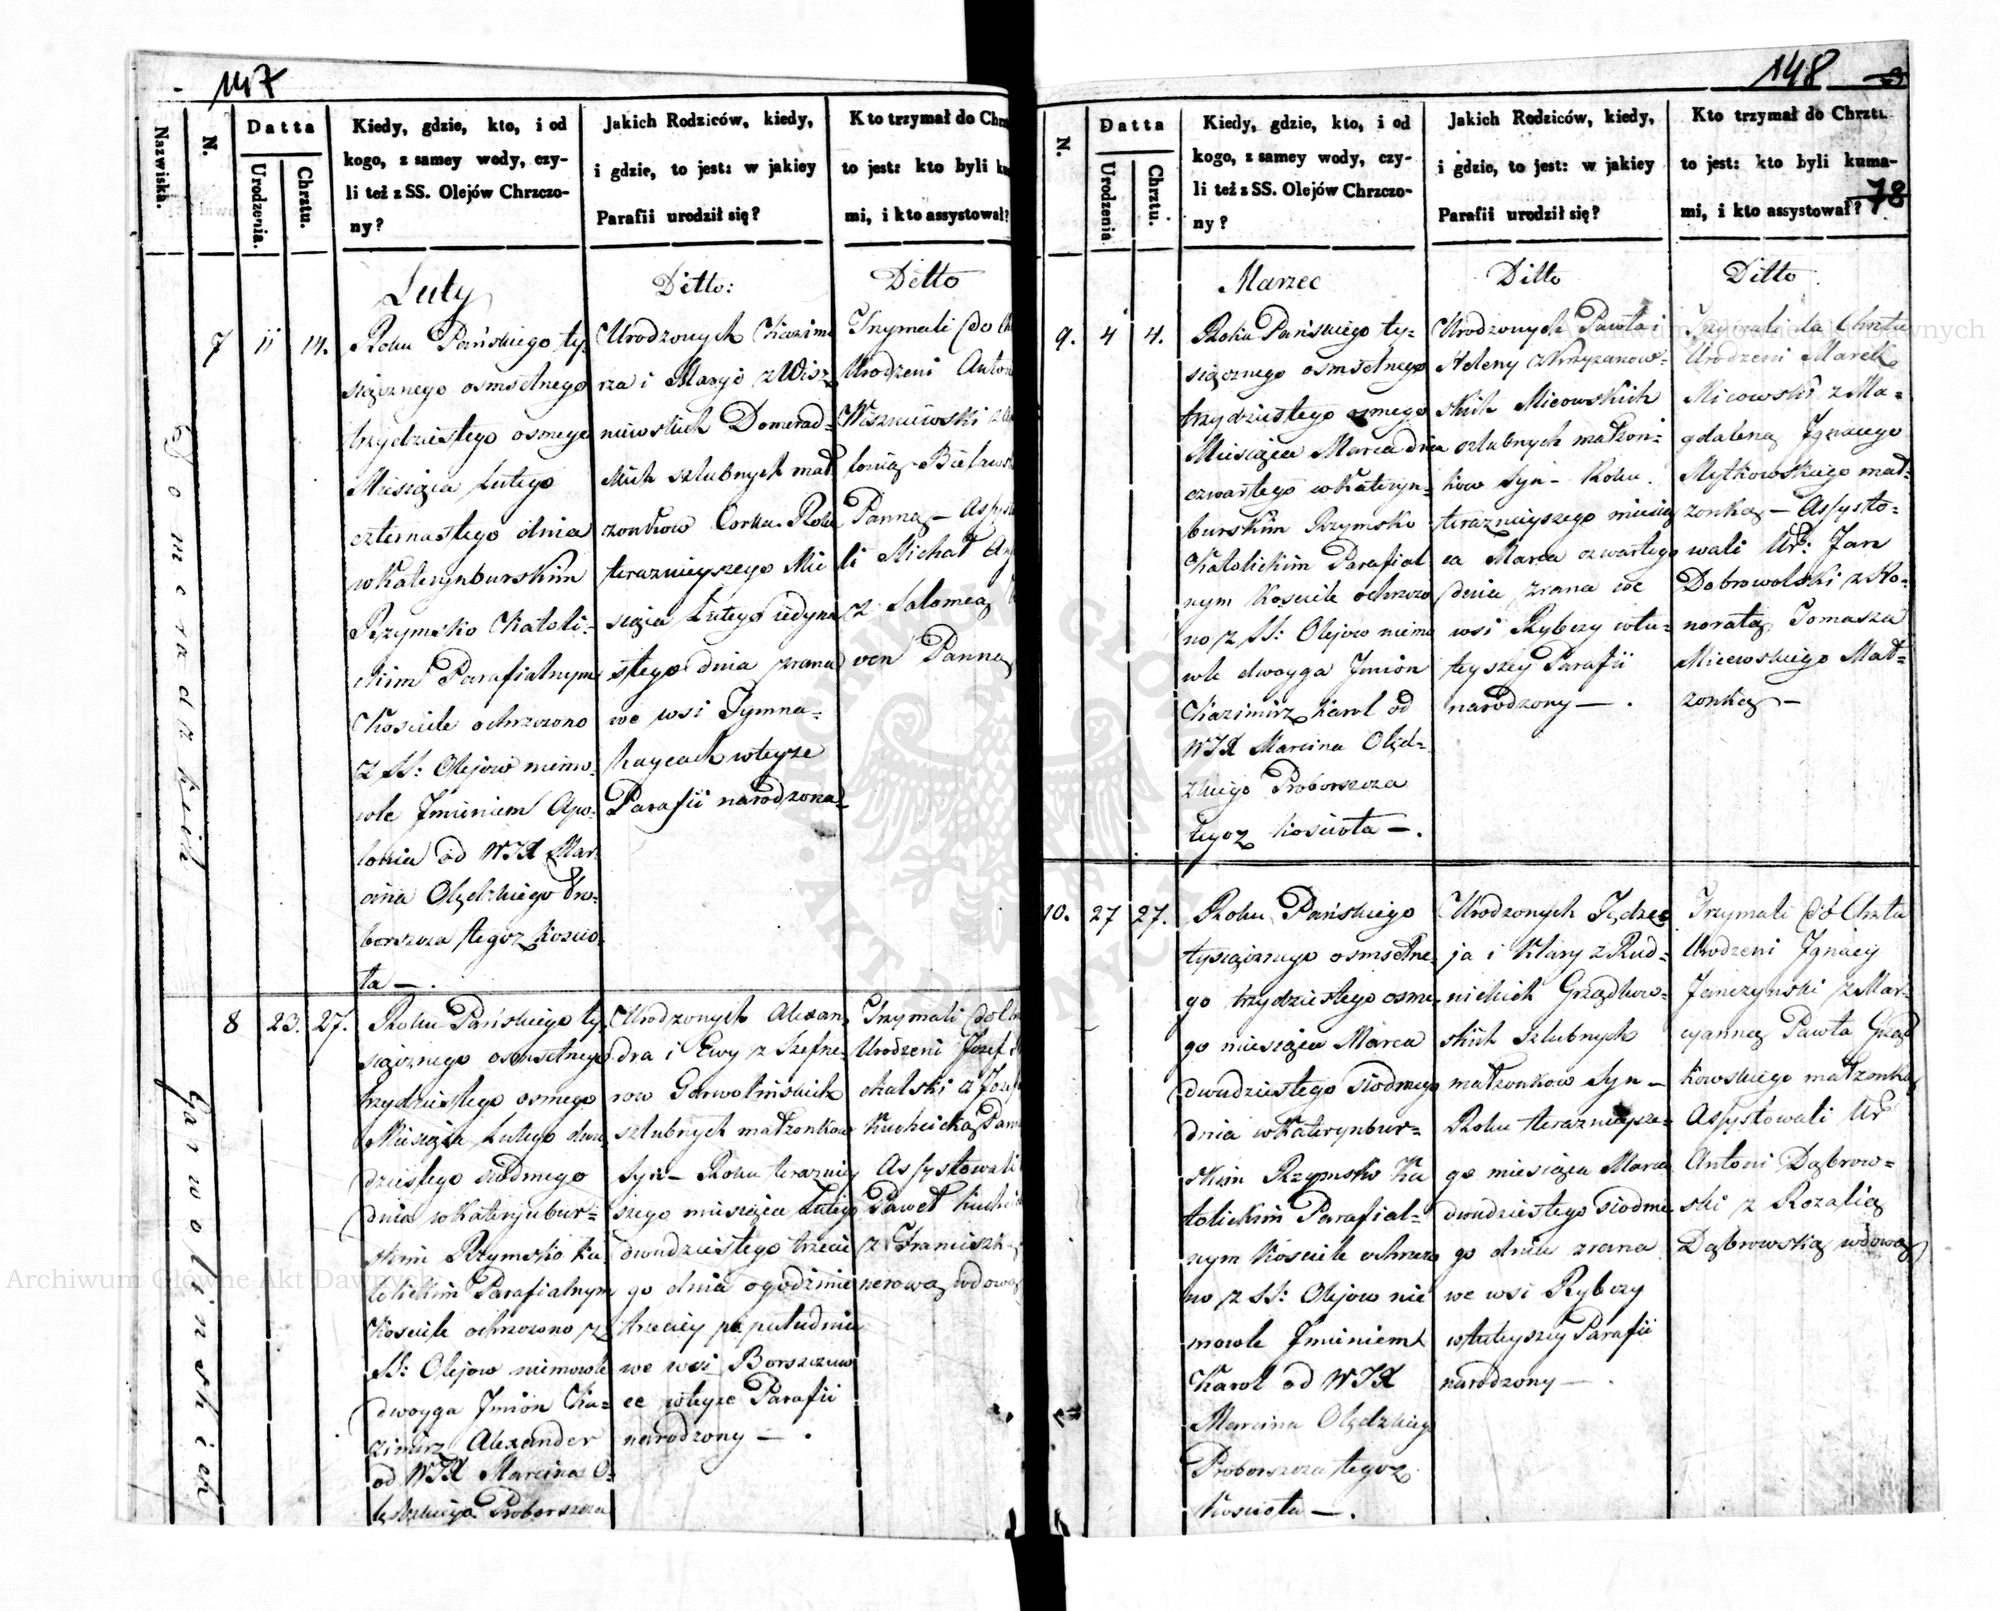 147
Nazwiska.
N.
Datta
Urodzenia.
Chrztu.
Kiedy, gdzie, kto, i od
kogo, z samey wody, czy-
li też z SS. Olejów Chrzczo-
ny?
Jakich Rodziców, kiedy,
i gdzie, to jest: w jakiey
Parafii urodził się?
Kto trzymał do Chrz
to jest: kto byli ku
mi, i kto assystował?
Domeradzkich
7
11
14.
Luty
Roku Pańskiego ty-
siącznego osmsetnego
trzydziestego osmego
Miesiąca Lutego
czternastego dnia
w Katerynburskim
Rzymsko Katoli-
ckim Parafialnym
Kościele ochrzczono
z SS: Olejow niemo-
wle Imieniem Apo-
lonia od WJX Mar-
cina Olędzkiego Pro-
borszcza tegoz Koscio-
ła —.
Ditto:
Urodzonych Kazimi
rza i Maryi z Wisz
niewskich Domerad-
zkich szlubnych mał
zonkow Corka. Roku
teraznieyszego Mie
siąca Lutego iedyna
stego dnia zrana
we wsi Tymna-
haycach wteyze
Parafii narodzona
Ditto
Trzymali do Ch
Urodzeni Anton
Wiszniewski z
lonią Bielaws
Panną — Assysto
li Michał
z Salomeą
ven Panną
Garwolinskich
8
23.
27.
Roku Pańskiego ty
siącznego osmsetnego
trzydziestego osmego
Miesiąca Lutego dwu
dziestego siodmego
dnia w Katerynbur-
skim Rzymsko Ka-
tolickim Parafialnym
Kosciele ochrzczono z
SS: Olejow niemowle
dwoyga Imion Ka-
zimirz Alexander
od WJX Marcina O-
lędzkiego Proborszcza
Urodzonych Alexan
dra i Ewy z Szefne-
row Garwolinskich
szlubnych małzonkow
Syn — Roku terazniey
szego miesiąca Lutego
dwudziestego trzecie
go dnia o godzinie
trzeciey po południu
we wsi Borszczuw
ce wteyze Parafii
narodzony — .
Trzymali do Ch
Urodzeni Jozef
chalski z Jozef
Kuchcicką Pan
Assystowali
Paweł Kuchci
z Franciszk
nerową wdową
148
78
N.
Datta
Urodzenia
Chrztu.
Kiedy, gdzie, kto, i od
kogo, z samey wody, czy-
li też z SS. Olejów Chrzczo-
ny?
Jakich Rodziców, kiedy,
i gdzie, to jest: w jakiey
Parafii urodził się?
Kto trzymał do Chrztu
to jest: kto byli kuma-
mi, i kto assystował?
9.
4
4.
Marzec
Roku Pańskiego ty-
siącznego osmsetnego
trzydziestego osmego
Miesiąca Marca dnia
czwartego w Kateryn-
burskim Rzymsko
Katolickim Parafial
nym Kosciele ochrzczo
no z SS: Olejow niemo
wle dwoyga Imion
Kazimirz Karol od
WJX Marcina Olędz-
zkiego Proborszcza
tegoz Kosciota —.
Ditto
Urodzonych Pawła i
Heleny z Krzyzanow-
skich Micowskich
szlubnych małzon-
kow Syn — Roku
teraznieyszego miesią
ca Marca czwartego
dnia zrana we
wsi Rybczy wtu-
teyszey Parafii
narodzony — .
Ditto
Trzymali do Chrztu
Urodzeni Marek
Micowski z Ma-
gdaleną Ignacego
Mytkowskiego mał-
zonką — Assysto-
wali Ur: Jan
Dobrowolski z Ho-
noratą Tomasza
Micewskiego Mał-
zonką —
10.
27
27.
Roku Pańskiego
tysiącznego osmsetne-
go trzydziestego osme
go miesiąca Marca
dwudziestego siodmego
dnia w Katerynbur-
skim Rzymsko Ka
tolickim Parafial-
nym Kosciele ochrzczo
no z SS: Olejow nie
mowle Imieniem
Karol od WJX
Marcina Olędzkieg
Proborszcza tegoz
Kosciota —.
Urodzonych Jędrze
ja i Klary z Rud-
nickich Grządkow-
skich Szlubnych
małzonkow Syn —
Roku teraznieysze-
go miesiąca Marca
dwudziestego siodme
go dnia zrana
we wsi Rybczy
wtuteyszey Parafii
narodzony — .
Trzymali do Chrztu
Urodzeni Ignacy
Jenczynski z Mar-
cyanną Pawła Grząd
kowskiego małzonką
Assystowali Ur
Antoni Dąbrow-
ski z Rozalią
Dąbrowską wdową
Archiwum Główne Akt Dawnych
Archiwum Główne Akt Dawnych
ARCHIWUM GŁÓWNE AKT DAWNYCH